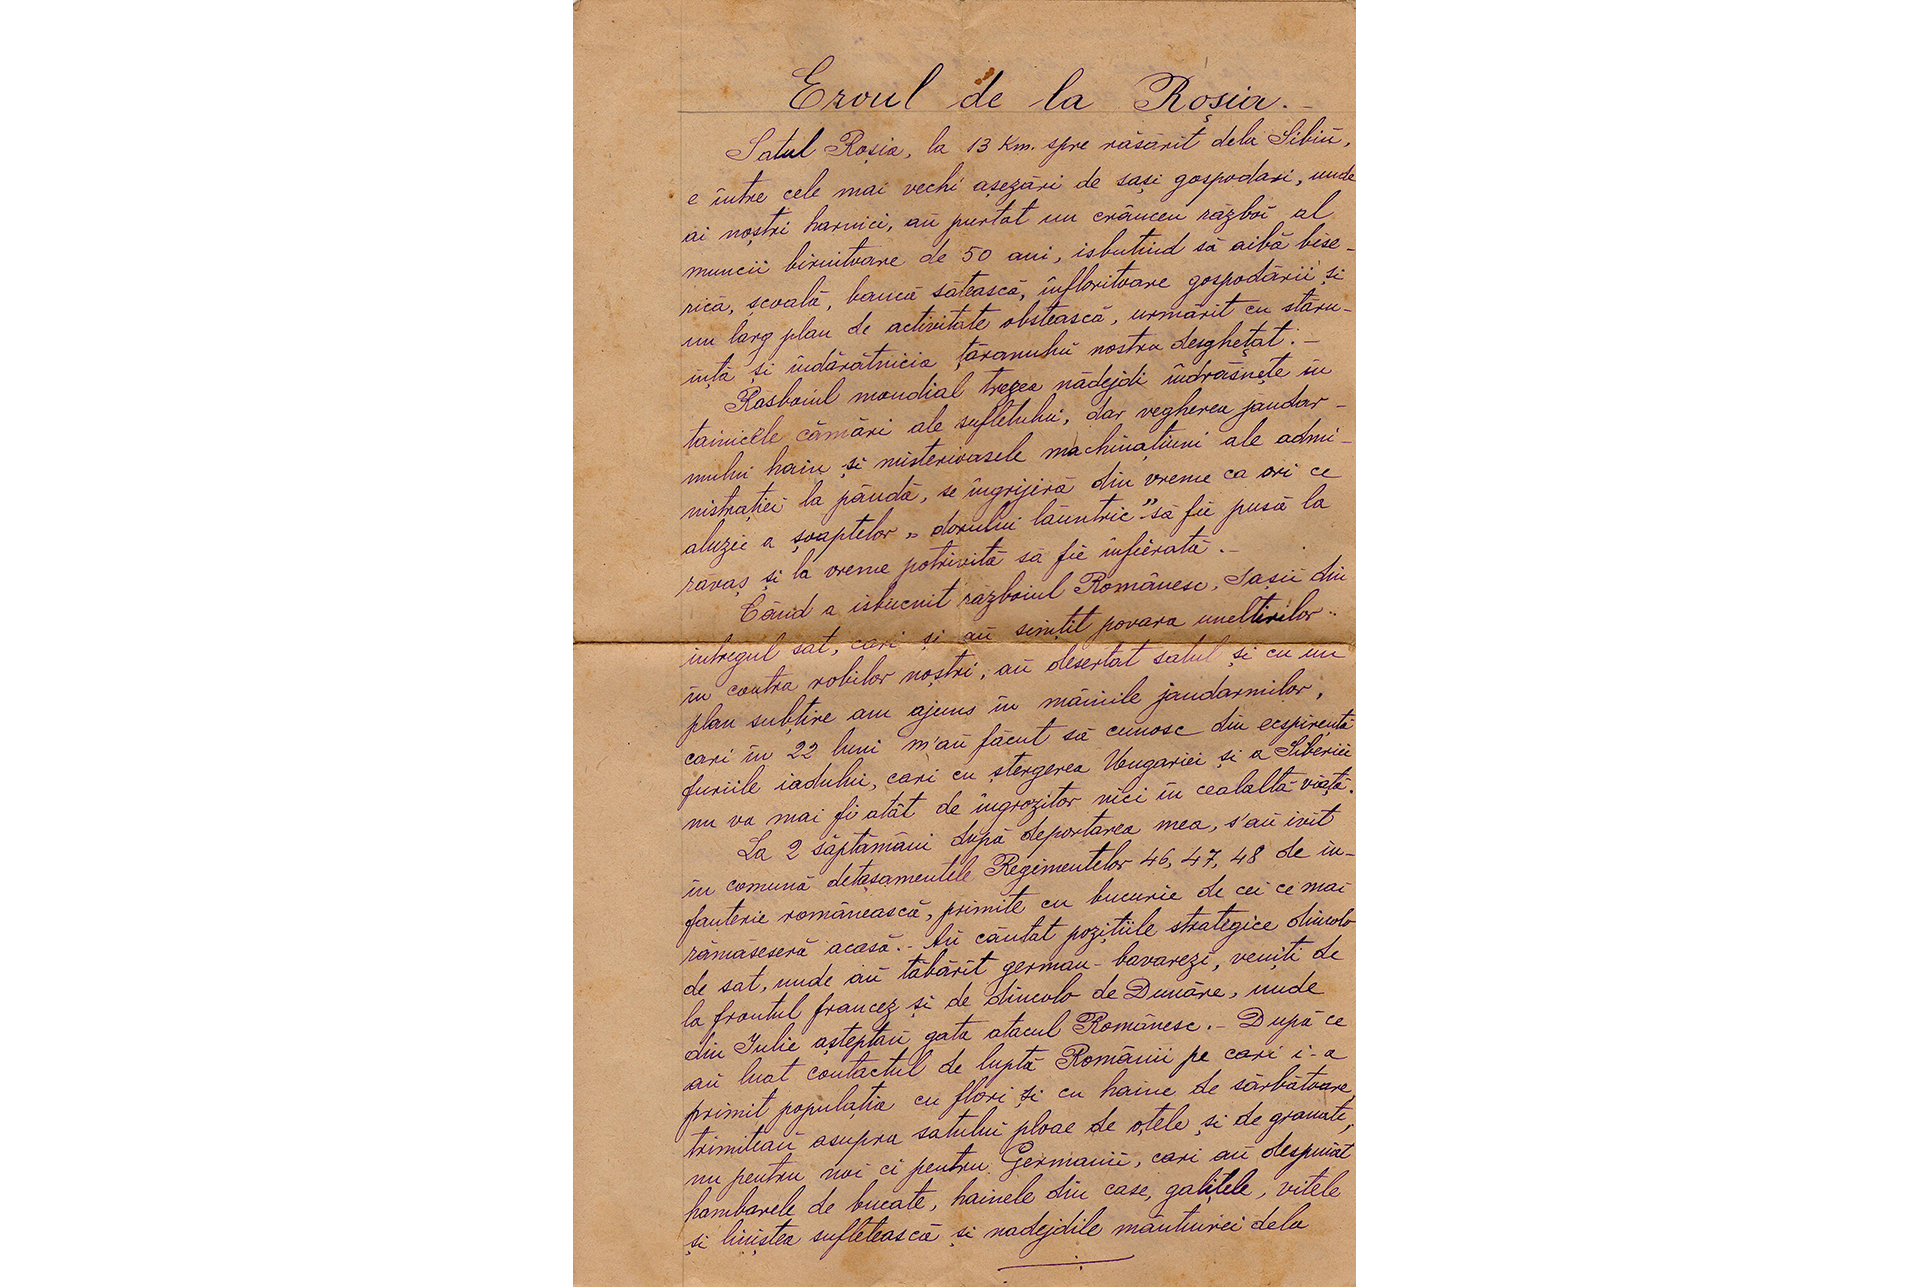 Eroul de la Roșia.–
Satul Roșia, la 13 Km. spre răsărit dela Sibiĭu,
e între cele mai vechi așezări de sași gospodari, unde
ai noștri harnici, aŭ purtat un crâncen războĭ al
muncii biruitoare de 50 ani, isbutind să aibă bise-
rică, școală, bancă sătească, înfloritoare gospodării și
un larg plan de activitate obștească, urmărit cu stăru-
ință și îndărătnicia țăranuluĭ nostru desghețat.–
Rasboiul mondial trezea nădejdi îndrăsnețe în
tainicele cămări ale sufletului, dar vegherea jandar-
mului hain și misterioasele machinațiuni ale admi-
nistrației la pândă, se îngrijiră din vreme ca ori ce
aluzie a șoaptelor „dorului lăuntric” să fie pusă la
răvaș și la vreme potrivită să fie înfierată.–
Când a isbucnit războiul Românesc, Sașii din
întregul sat, cari și aŭ simțit povara uneltirilor
în contra robilor noștri, aŭ desertat satul și cu un
plan subțire am ajuns în mâinile jandarmilor,
cari în 22 luni m'aŭ făcut să cunosc din ecspirență
furiile iadului, cari cu ștergerea Ungariei și a Siberiei
nu va mai fi atât de îngrozitor nici în cealaltă viață.
La 2 săptămâni după deportarea mea, s'aŭ ivit
în comună detașamentele Regimentelor 46, 47, 48 de in-
fanterie românească, primite cu bucurie de cei ce mai
rămăseseră acasă.– Aŭ căutat pozițiile strategice dincolo
de sat, unde aŭ tăbărît german-bavarezi, veniți de
la frontul francez și de dincolo de Dunăre, unde
din Iulie așteptaŭ gata atacul Românesc.– După ce
aŭ luat contactul de luptă Românii pe cari i-a
primit populația cu flori și cu haine de sărbătoare,
trimiteaŭ asupra satului ploae de oțele și de granate,
nu pentru noi ci pentru Germanii, cari aŭ despuiat
hambarele de bucate, hainele din case, galițele, vitele
și liniștea sufletească și nadejdile mântuirei dela